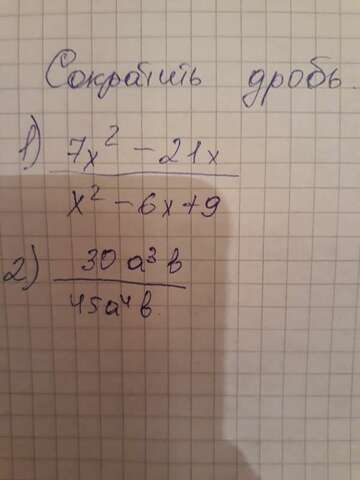 Сократить дробь.
1) 7x² - 21x
x² - 6x + 9
2) 30 a³ b
45a⁴ b